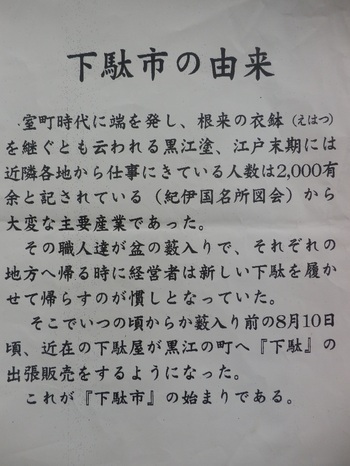 下駄市の由来
室町時代に端を発し、根来の衣鉢（えはつ）
を継ぐとも云われる黒江塗、江戸末期には
近隣各地から仕事にきている人数は2,000有
余と記されている（紀伊国名所図会）から
大変な主要産業であった。
その職人達が盆の藪入りで、それぞれの
地方へ帰る時に経営者は新しい下駄を履か
せて帰らすのが慣しとなっていた。
そこでいつの頃からか藪入り前の8月10日
頃、近在の下駄屋が黒江の町へ『下駄』の
出張販売をするようになった。
これが『下駄市』の始まりである。